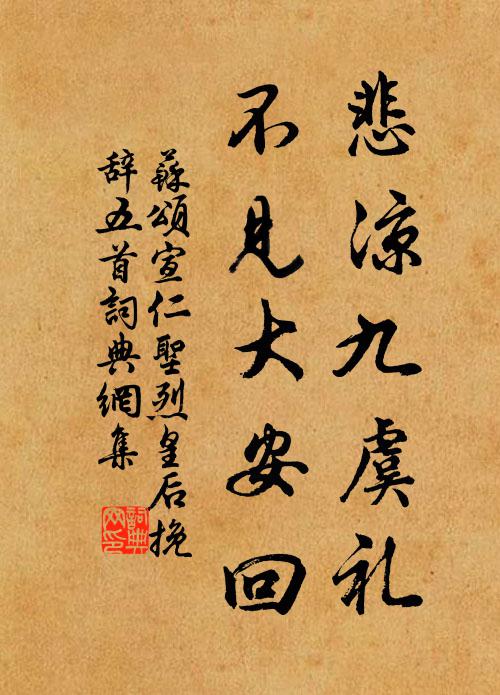 悲凉九虞礼
不见大安回
蘇頌宣仁聖烈皇后挽
辞五首詞典網集